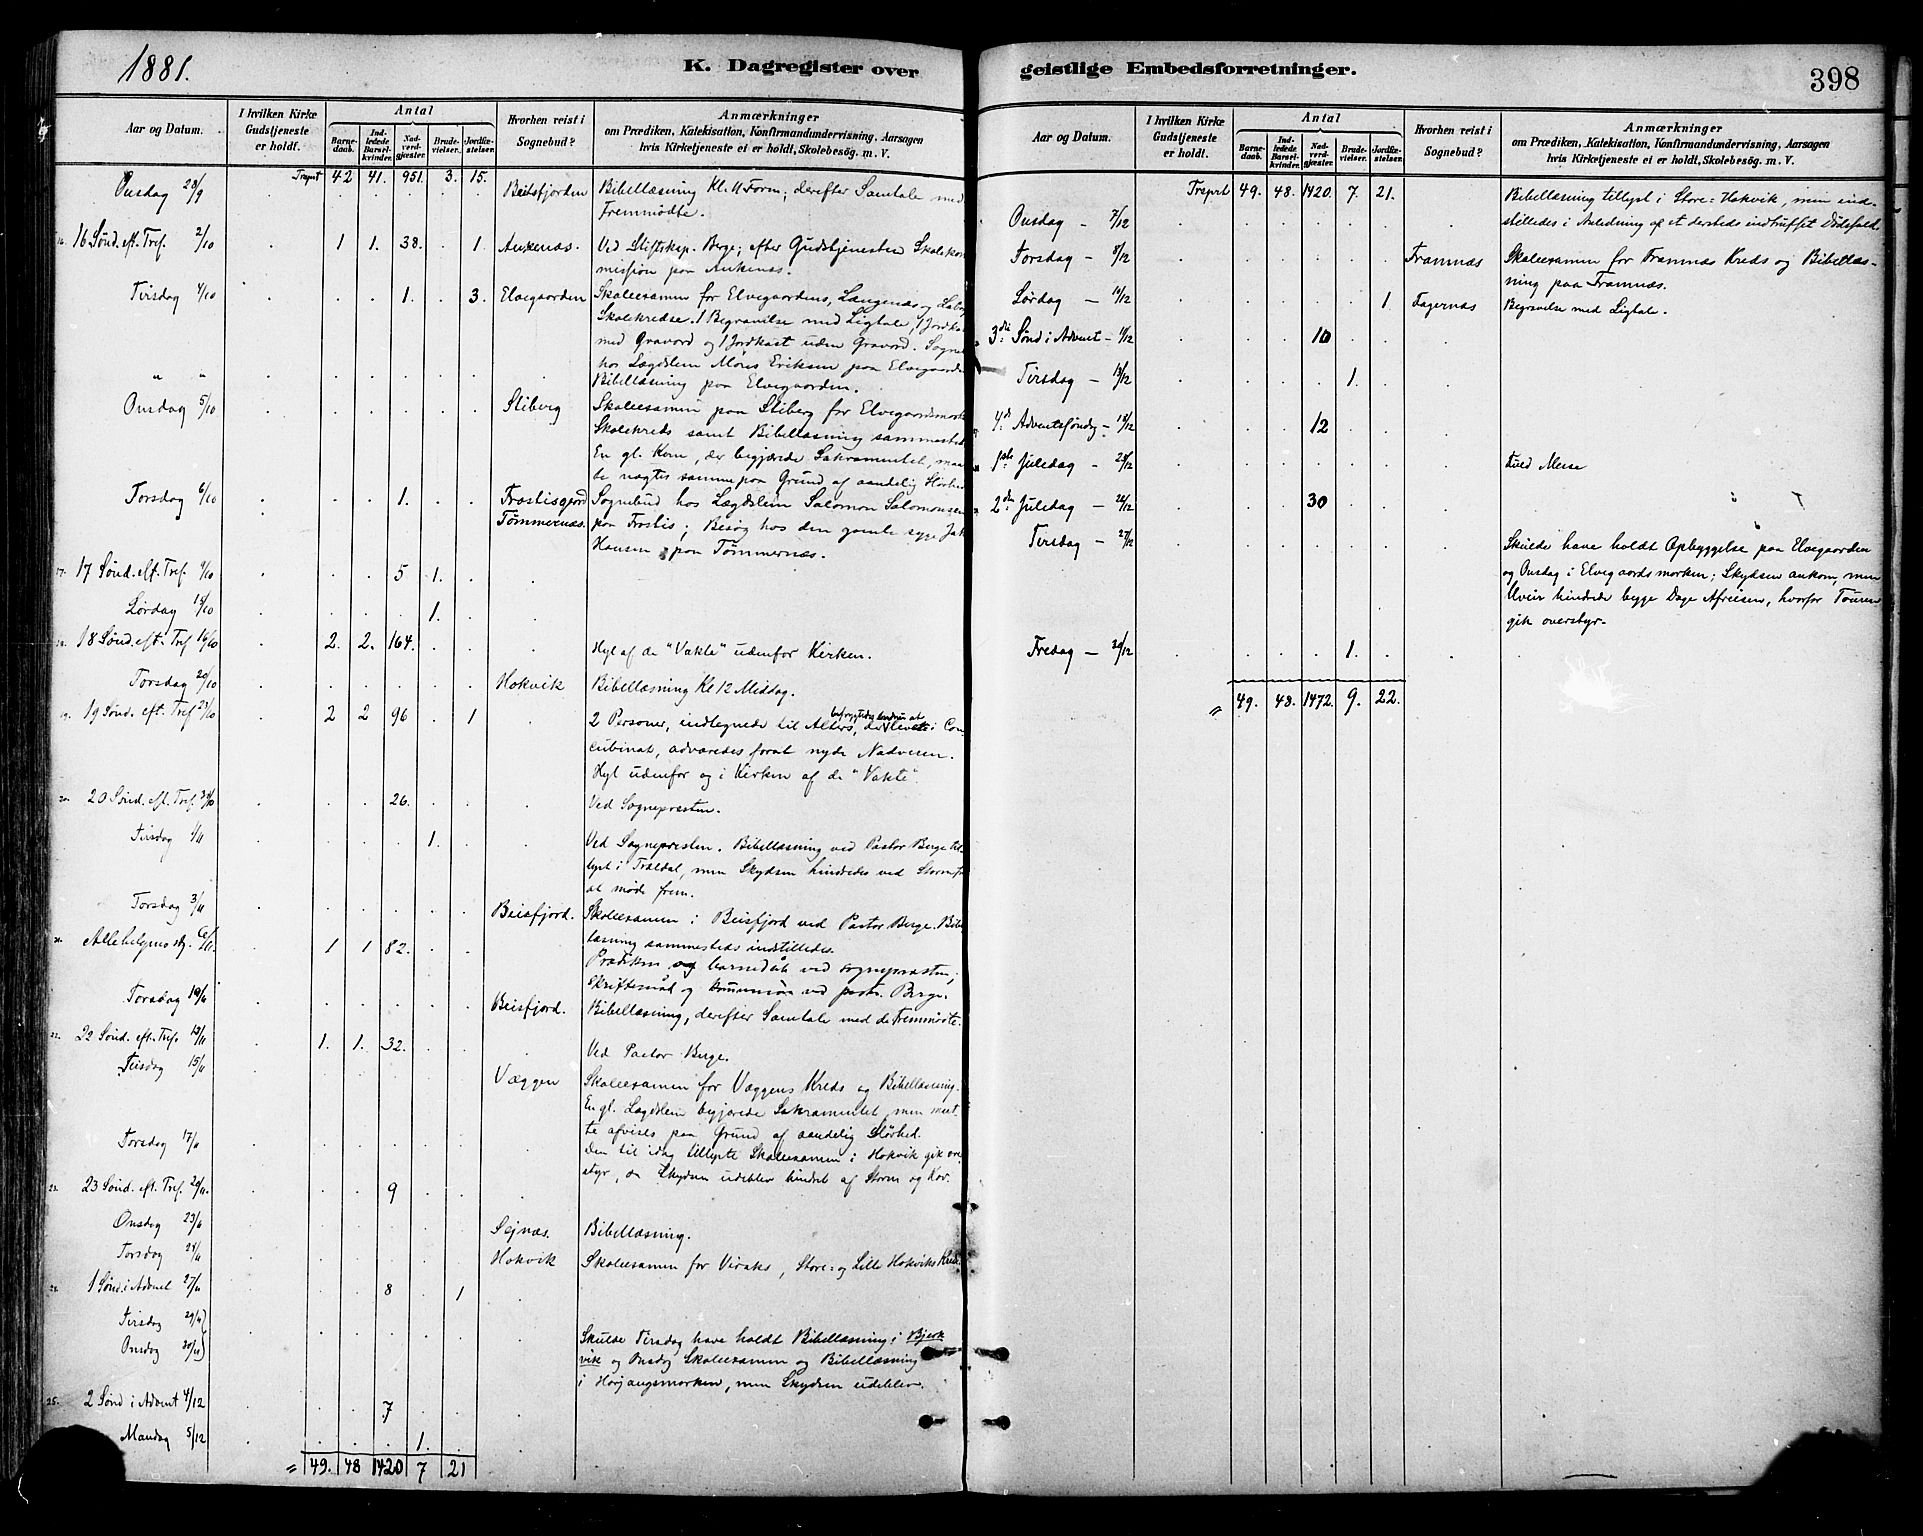 1881.
K. Dagregister over
Aar og Datum.
I hvilken Kirke
Gudstjeneste
er holdt.
Antal
Barne-
daab.
Ind-
ledede
Barsel-
kvinder.
Nad-
verd-
gjæster.
Brude-
vielser.
Jordfæ-
stelser.
Hvorhen reist i
Sognebud?
Anmærkninger
om Prædiken, Katekisation, Konfirmandundervisning, Aarsagen
hvis Kirketjeneste ei er holdt, Skolebesøg. m. V.
Trsprt 42 41. 951. 3. 15.
Onsdag 28/9 Beisfjorden Bibellæsning Kl. 11 Form; derefter Samtale med
Fremmødte.
16 Sønd. eft. Tref. 2/10 1 1. 38. 1. Ankenæs. Ved Stiftskap. Berge; efter Gudstjenesten Skolekom
mission paa Ankenæs.
Tirsdag 4/10 1. 3. Elvegaarden Skoleexamen for Elvegaardens, Længenæs og
Skolekredse. 1 Begravelse med Ligtale, 1 Jordkast
med Gravord og 1 Jordkast uden Gravord. Sogneb
hos Lægdslem Mons Eriksen paa Elvegaarden
" " Bibellæsning paa Elvegaarden.
Onsdag 5/10 Stiberg Skoleexamen paa Stiberg for Elvegaardsmark
Skolekreds samt Bibellæsning sammesteds
En gl. Kone, der begjærede Sakramentet, maa
te nægtes samme paa Grund af aandelig Sløvhed
Torsdag 6/10 1. Frostisgjord Sognebud hos Lægdslem Salomon Salomonsen
Tømmernæs. paa Frostis; Besøg hos den gamle syge Jak
Hansen paa Tømmernæs.
17. 17 Sønd. eft. Tref. 9/10 5 1.
Lørdag 15/10 1.
18. 18 Sønd. eft. Tref 16/10 2. 2. 164. Hyl af de "Vakte" udenfor Kirken.
Torsdag 20/10 Hokvik Bibellæsning Kl 12 Middag.
19. 19 Sønd. eft. Tref 23/10 2 2 96 1 2 Personer, indtegnede til Alters, der levede i Con-
cubinat, advaredes forat nyde Nadveren.
Hyl udenfor og i Kirken af de "Vakte".
20. 20 Sønd. eft. Tref 30/10 26. Ved Sognepresten.
Tirsdag 1/11 1. Ved Sognepresten. Bibellæsning ved Pastor Berge til-
lyst i Traldal, men Skydsen hindredes ved Storm fra
at møde frem.
Torsdag 3/11 Beisfjord. Skoleexamen i Beisfjord ved Pastor Berge. Bibel
læsning sammesteds indstilledes.
Allehelgens dg. 6/11. 1 1 82. Prædiken og barnedåb ved sognepræsten;
skriftemål og kommunion ved past. Berge.
Torsdag 10/11 Beisfjord. Bibellæsning, derefter Samtale med de Fremmødte.
22. 22 Sønd. eft. Tref. 13/11 1. 1. 32. Ved Pastor Berge.
Tirsdag 15/11 Væggen Skoleexamen for Væggens Kreds og Bibellæsning.
En gl. Lægdslem begjærede Sakramentet, men maat-
te afvises paa Grund af aandelig Sløvhed.
Torsdag 17/11 Den til idag tillyste Skoleexamen i Hokvik gik over
styr, da Skydsen udeblev hindret af Storm og Kov.
23. 23 Sønd. eft. Tref. 20/11. 9
Onsdag 23/11 Sejnæs. Bibellæsning.
Torsdag 24/11 Hokvik Skoleexamen for Viraks, Store- og Lille Hokviks Kreds
1 Sønd. i Advent 27/11 8 1
Tirsdag 29/11
Onsdag 30/11 Skulde Tirsdag have holdt Bibellæsning i Bjerk
vik og Onsdag Skoleexamen og Bibellæsning
i Herjangsmarken, men Skydsen udeblev.
25. 2 Sønd i Advent 4/12 7
Mandag 5/12 1.
" 49. 48 1420 7 21
geistlige Embedsforretninger.
398
Aar og Datum.
I hvilken Kirke
Gudstjeneste
er holdt.
Antal
Barne-
daab.
Ind-
ledede
Barsel-
kvinder.
Nad-
verd-
gjæster.
Brude-
vielser.
Jordfæ-
stelser.
Hvorhen reist i
Sognebud?
Anmærkninger
om Prædiken, Katekisation, Konfirmandundervisning, Aarsagen
hvis Kirketjeneste ei er holdt, Skolebesøg. m. V.
Trsprt 49. 48. 1420. 7 21.
Onsdag - 7/12 Bibellæsning tillyst i Store-Hokvik, men ind-
stilledes i Anledning af et dersteds indtruffet Dødsfald.
Torsdag - 8/12 Framnæs Skoleexamen for Framnæs Kreds og Bibellæs-
ning paa Framnæs.
Lørdag - 10/12 1 Fagernæs Begravelse med Ligtale.
3die Sønd i Advent - 11/12 10
Tirsdag - 13/12 1.
4de Adventssøndg - 18/12 12
1ste Juledag - 25/12 Fuld Messe
2den Juledag - 26/12 30 "
Tirsdag - 27/12 Skulde have holdt Opbyggelse paa Elvegaarden
og Onsdag i Elvegaardsmarken; Skydsen ankom, men
Uveir hindrede begge Dage Afreisen, hvorfor Touren
gik overstyr.
Fredag - 30/12 1.
" 49. 48. 1472. 9. 22.